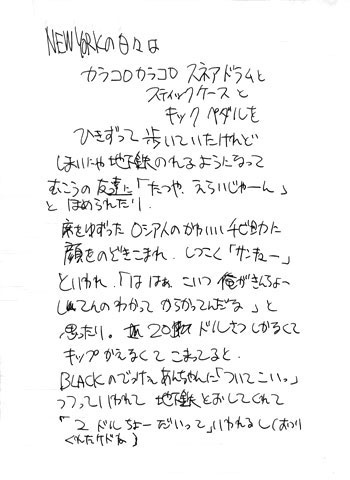 NEW YORKの日々は
カラコロカラコロ スネアドラムと
スティックケースと
キックペダルを
ひきずって歩いていたけれど
しまいにゃ地下鉄のれるようになって
むこうの友達に「たつや、えらいじゃーん」
とほめられたり.
席をゆずったロシア人のかわいいチビ助に
顔をのぞきこまれ.しつこく「サンキュー」
といわれ.「ははぁ こいつ俺がきんちょー
してんのわかってからかってんだな」と
思ったり。20ドルさつしかなくて
キップかえなくてこまってると.
BLACKのでっけぇあんちゃんに「ついてこいっ」
つってっいわれて 地下鉄とおしてくれて
「2ドルちょーだいって」いわれるし(おつり
くれたケドね)